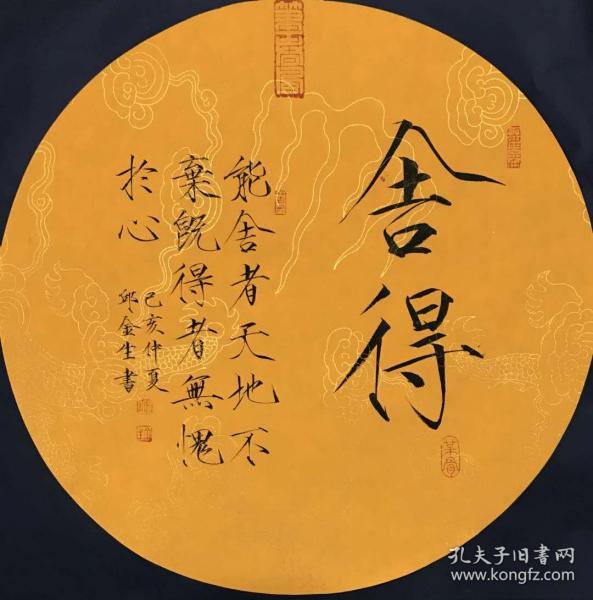 舍得
能舍者天地不
棄既得者無愧
於心
己亥仲夏
邱金生書
孔夫子旧書网
www.kongfz.com